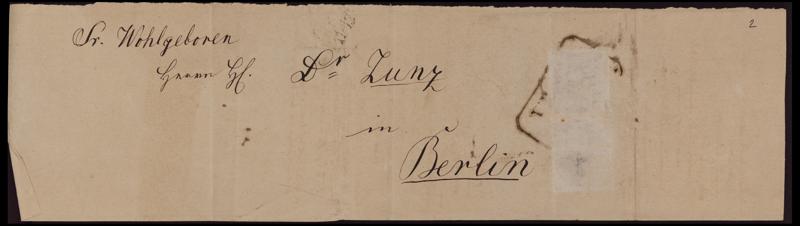 Sr. Wohlgeboren
Herrn H. Dr Zunz
in
Berlin
2